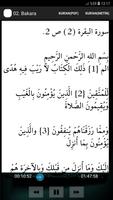 12:17
02. Bakara
KURAN(PDF)
KURAN(METIN)
سورة البقرة (2) ص 2.
بِسْمِ اللَّهِ الرَّحْمَنِ الرَّحِيمِ
{1} ذَلِكَ الْكِتَابُ لَا رَيْبَ فِيهِ هُدًى
لِّلْمُتَّقِينَ {2} الَّذِينَ يُؤْمِنُونَ بِالْغَيْبِ
وَيُقِيمُونَ الصَّلَاةَ وَمِمَّا رَزَقْنَاهُمْ
يُنفِقُونَ {3} والَّذِينَ يُؤْمِنُونَ بِمَا
أُنزِلَ إِلَيْكَ وَمَا أُنزِلَ مِن
قَبْلِكَ وَبِالآخِرَةِ هُمْ
00:10:52
01:47:58